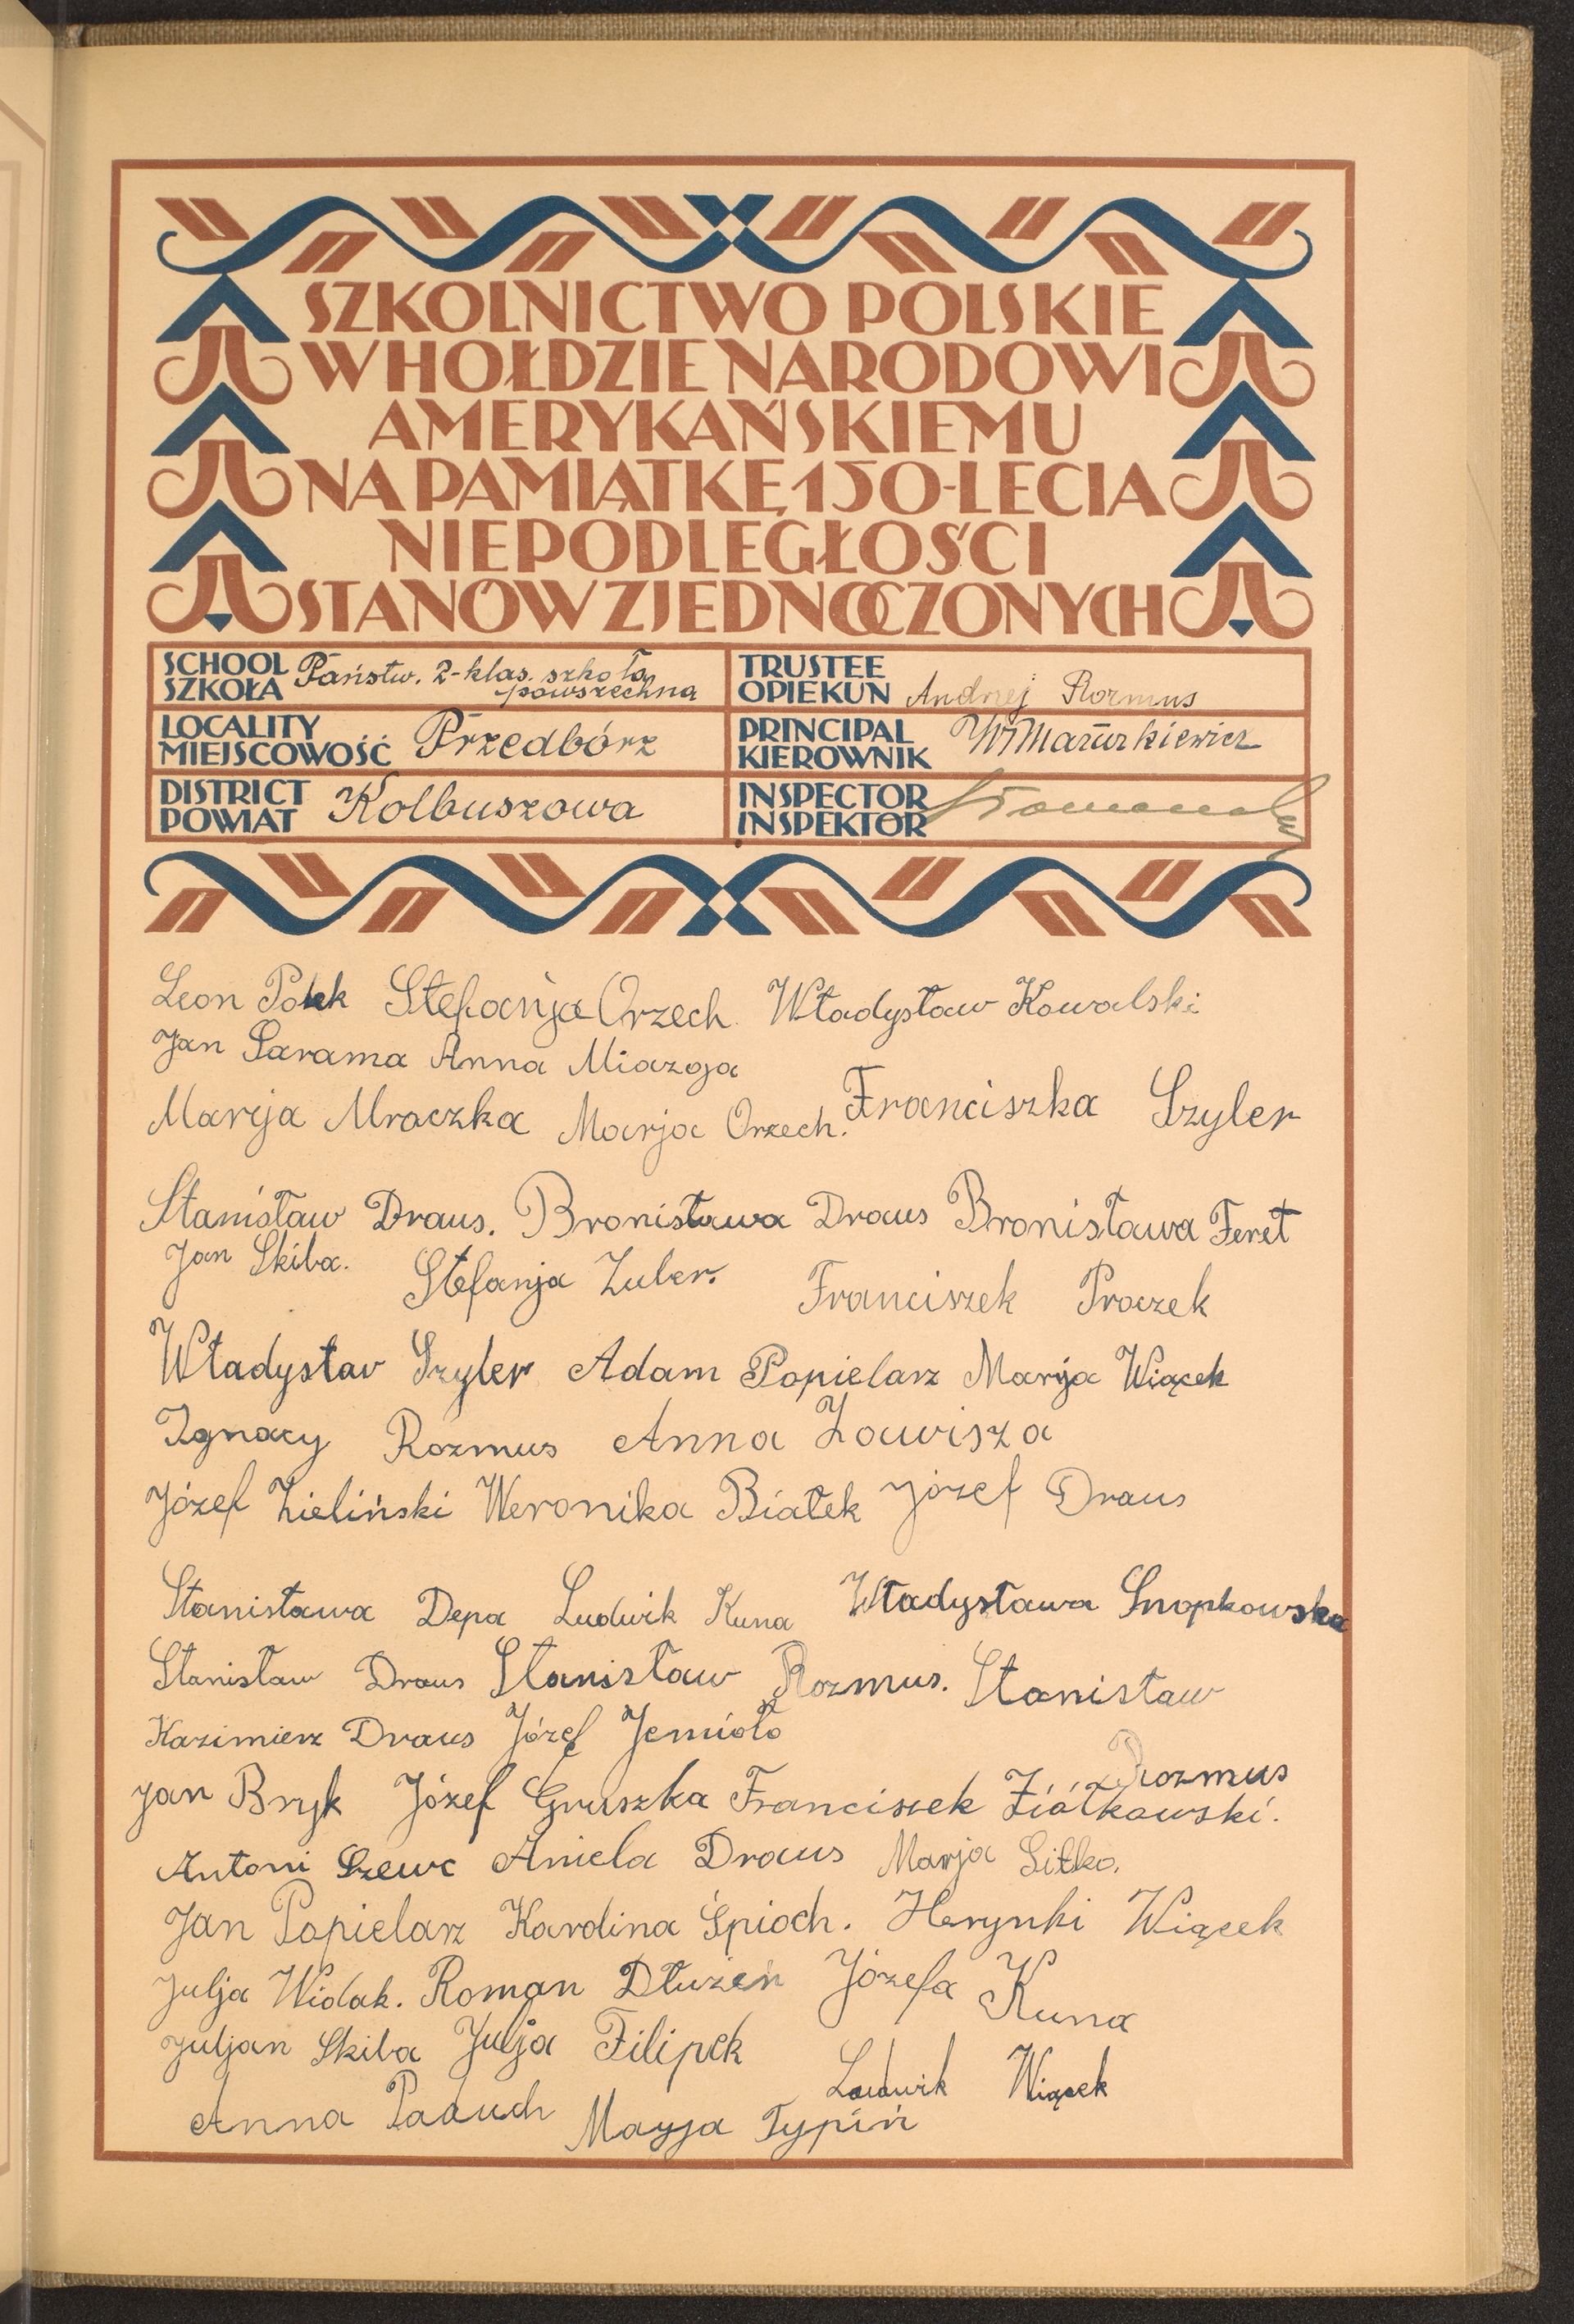 SZKOLNICTWO POLSKIE
W HOŁDZIE NARODOWI
AMERYKAŃSKIEMU
NA PAMIĄTKĘ 150-LECIA
NIEPODLEGŁOŚCI
STANÓW ZJEDNOCZONYCH
SCHOOL
SZKOŁA
Państw. 2-klas. szkoła
powszechna
TRUSTEE
OPIEKUN
Andrzej Rozmus
LOCALITY
MIEJSCOWOŚĆ
Przedbórz
PRINCIPAL
KIEROWNIK
WMazurkiewicz
DISTRICT
POWIAT
Kolbuszowa
INSPECTOR
INSPEKTOR
Leon Polek Stefanja Orzech Władysław Kowalski
Jan Sarama Anna Miazga
Marija Mroczka Marja Orzech. Franciszka Szyler
Stanisław Draus. Bronisława Draus Bronisława Feret
Jan Skiba. Stefanja Zuber. Franciszek Proczek
Władysław Szyler Adam Popielarz Marija Wiącek
Ignacy Rozmus Anna Zawisza
Józef Zieliński Weronika Białek Józef Draus
Stanisława Depa Ludwik Kuna Władysława Snopkowska
Stanisław Draus Stanisław Rozmus. Stanisław
Kazimierz Draus Józef Jemioło
Rozmus
Jan Bryk Józef Gruszka Franciszek Ziółkowski.
Antoni Szewc Aniela Draus Marja Sitko.
Jan Popielarz Karolina Śpioch. Herynki Wiącek
Julja Widak. Roman Dłużeń Józefa Kuna
Juljan Skiba Julja Filipek
Ludwik Wiącek
Anna Paduch Maryja Typiń